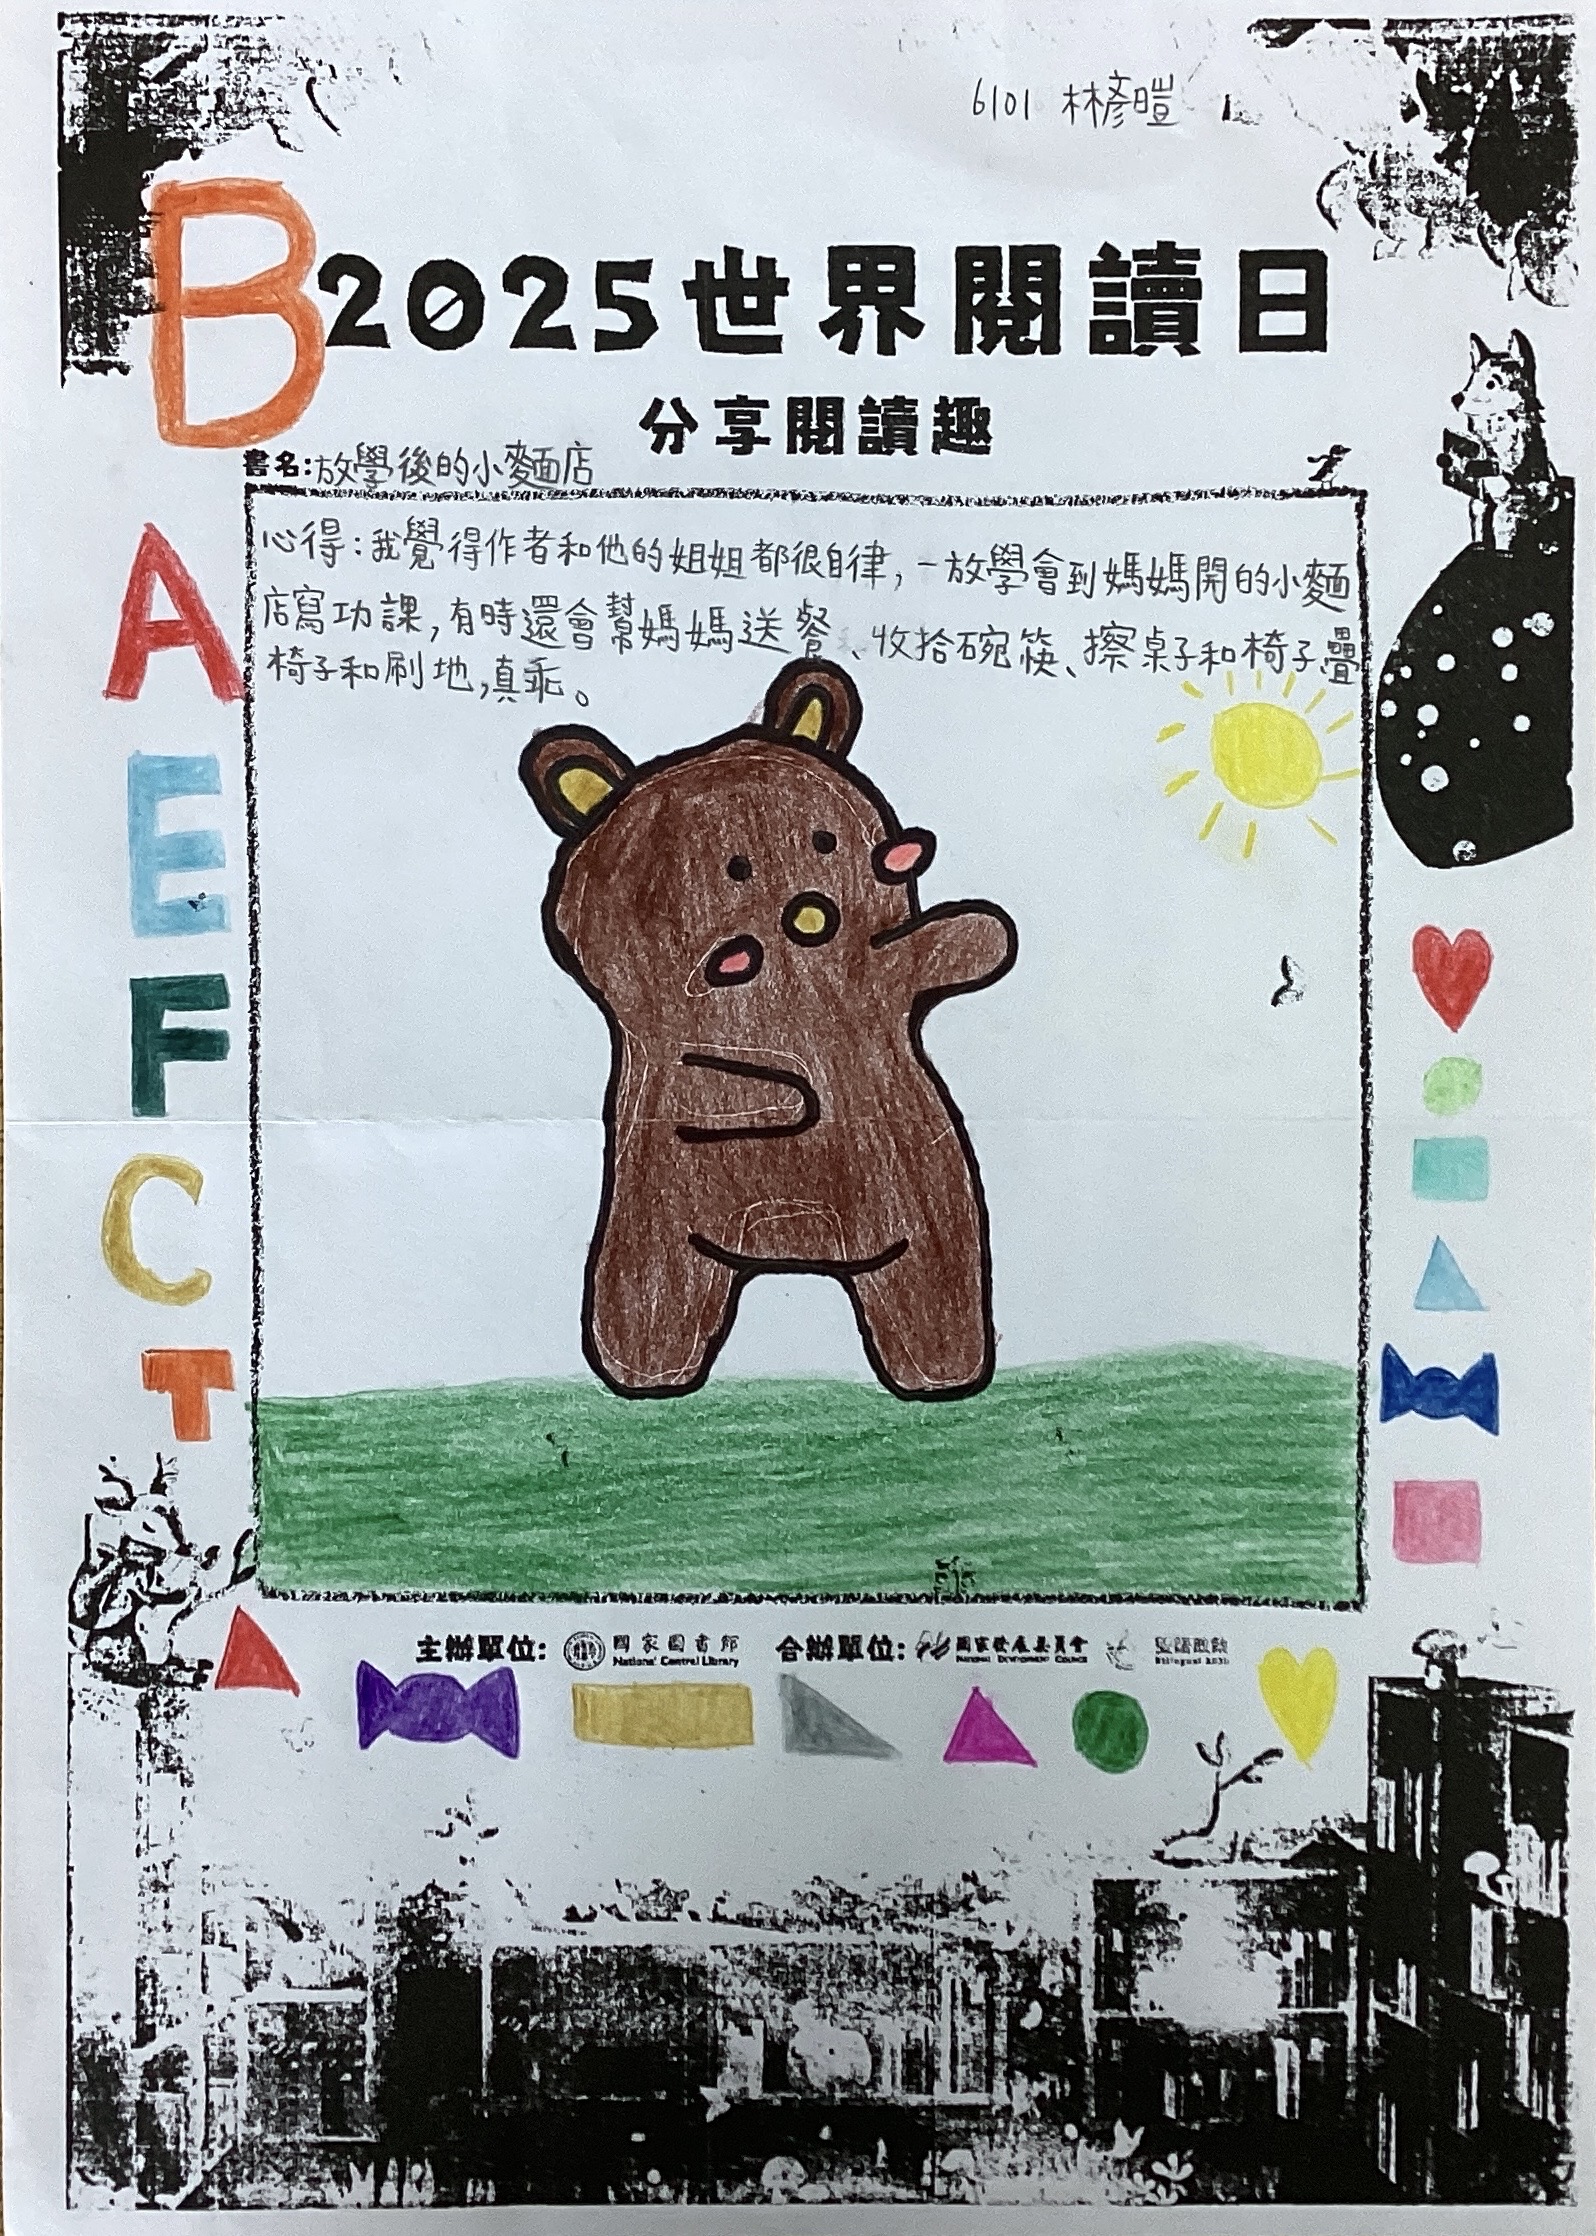 6101 林彥暟
B
2025世界閱讀日
分享閱讀趣
書名:放學後的小麵店
心得:我覺得作者和他的姐姐都很自律,一放學會到媽媽開的小麵
店寫功課,有時還會幫媽媽送餐、收拾碗筷、擦桌子和椅子疊
椅子和刷地,真乖。
A
E
F
C
T
主辦單位: 國家圖書館 合辦單位: 國家發展委員會
National Central Library NATIONAL DEVELOPMENT COUNCIL Bilingual 2030